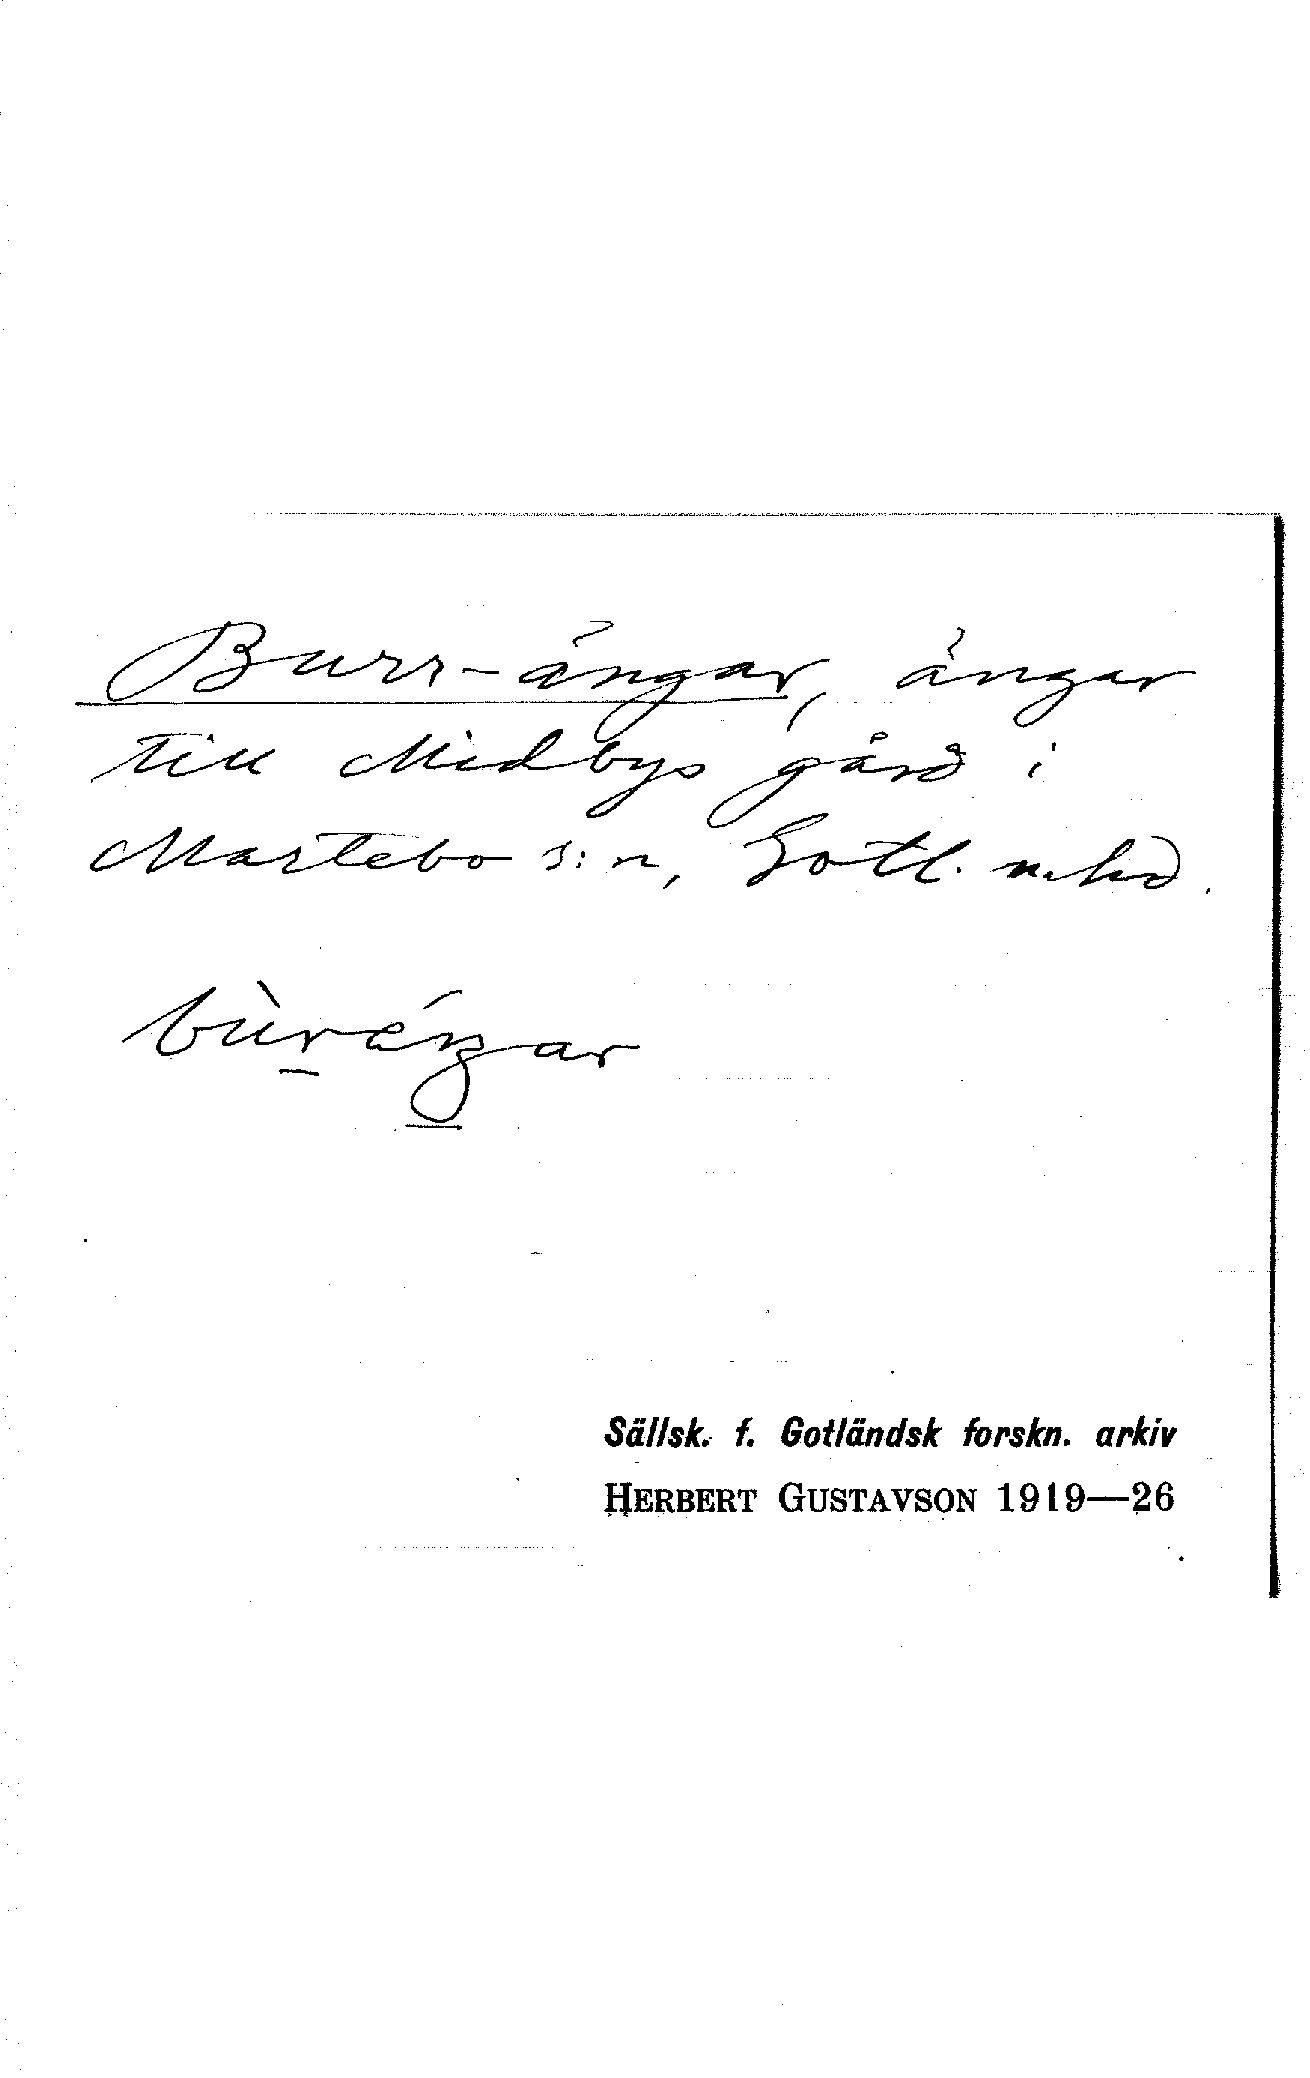 Burr-ängar, ängar
till Medbys gård i
Martebo s:n, Gotl. n. hd.
bùr̲éŋ̲ar
Sällsk. f. Gotländsk forskn. arkiv
HERBERT GUSTAVSON 1919—26